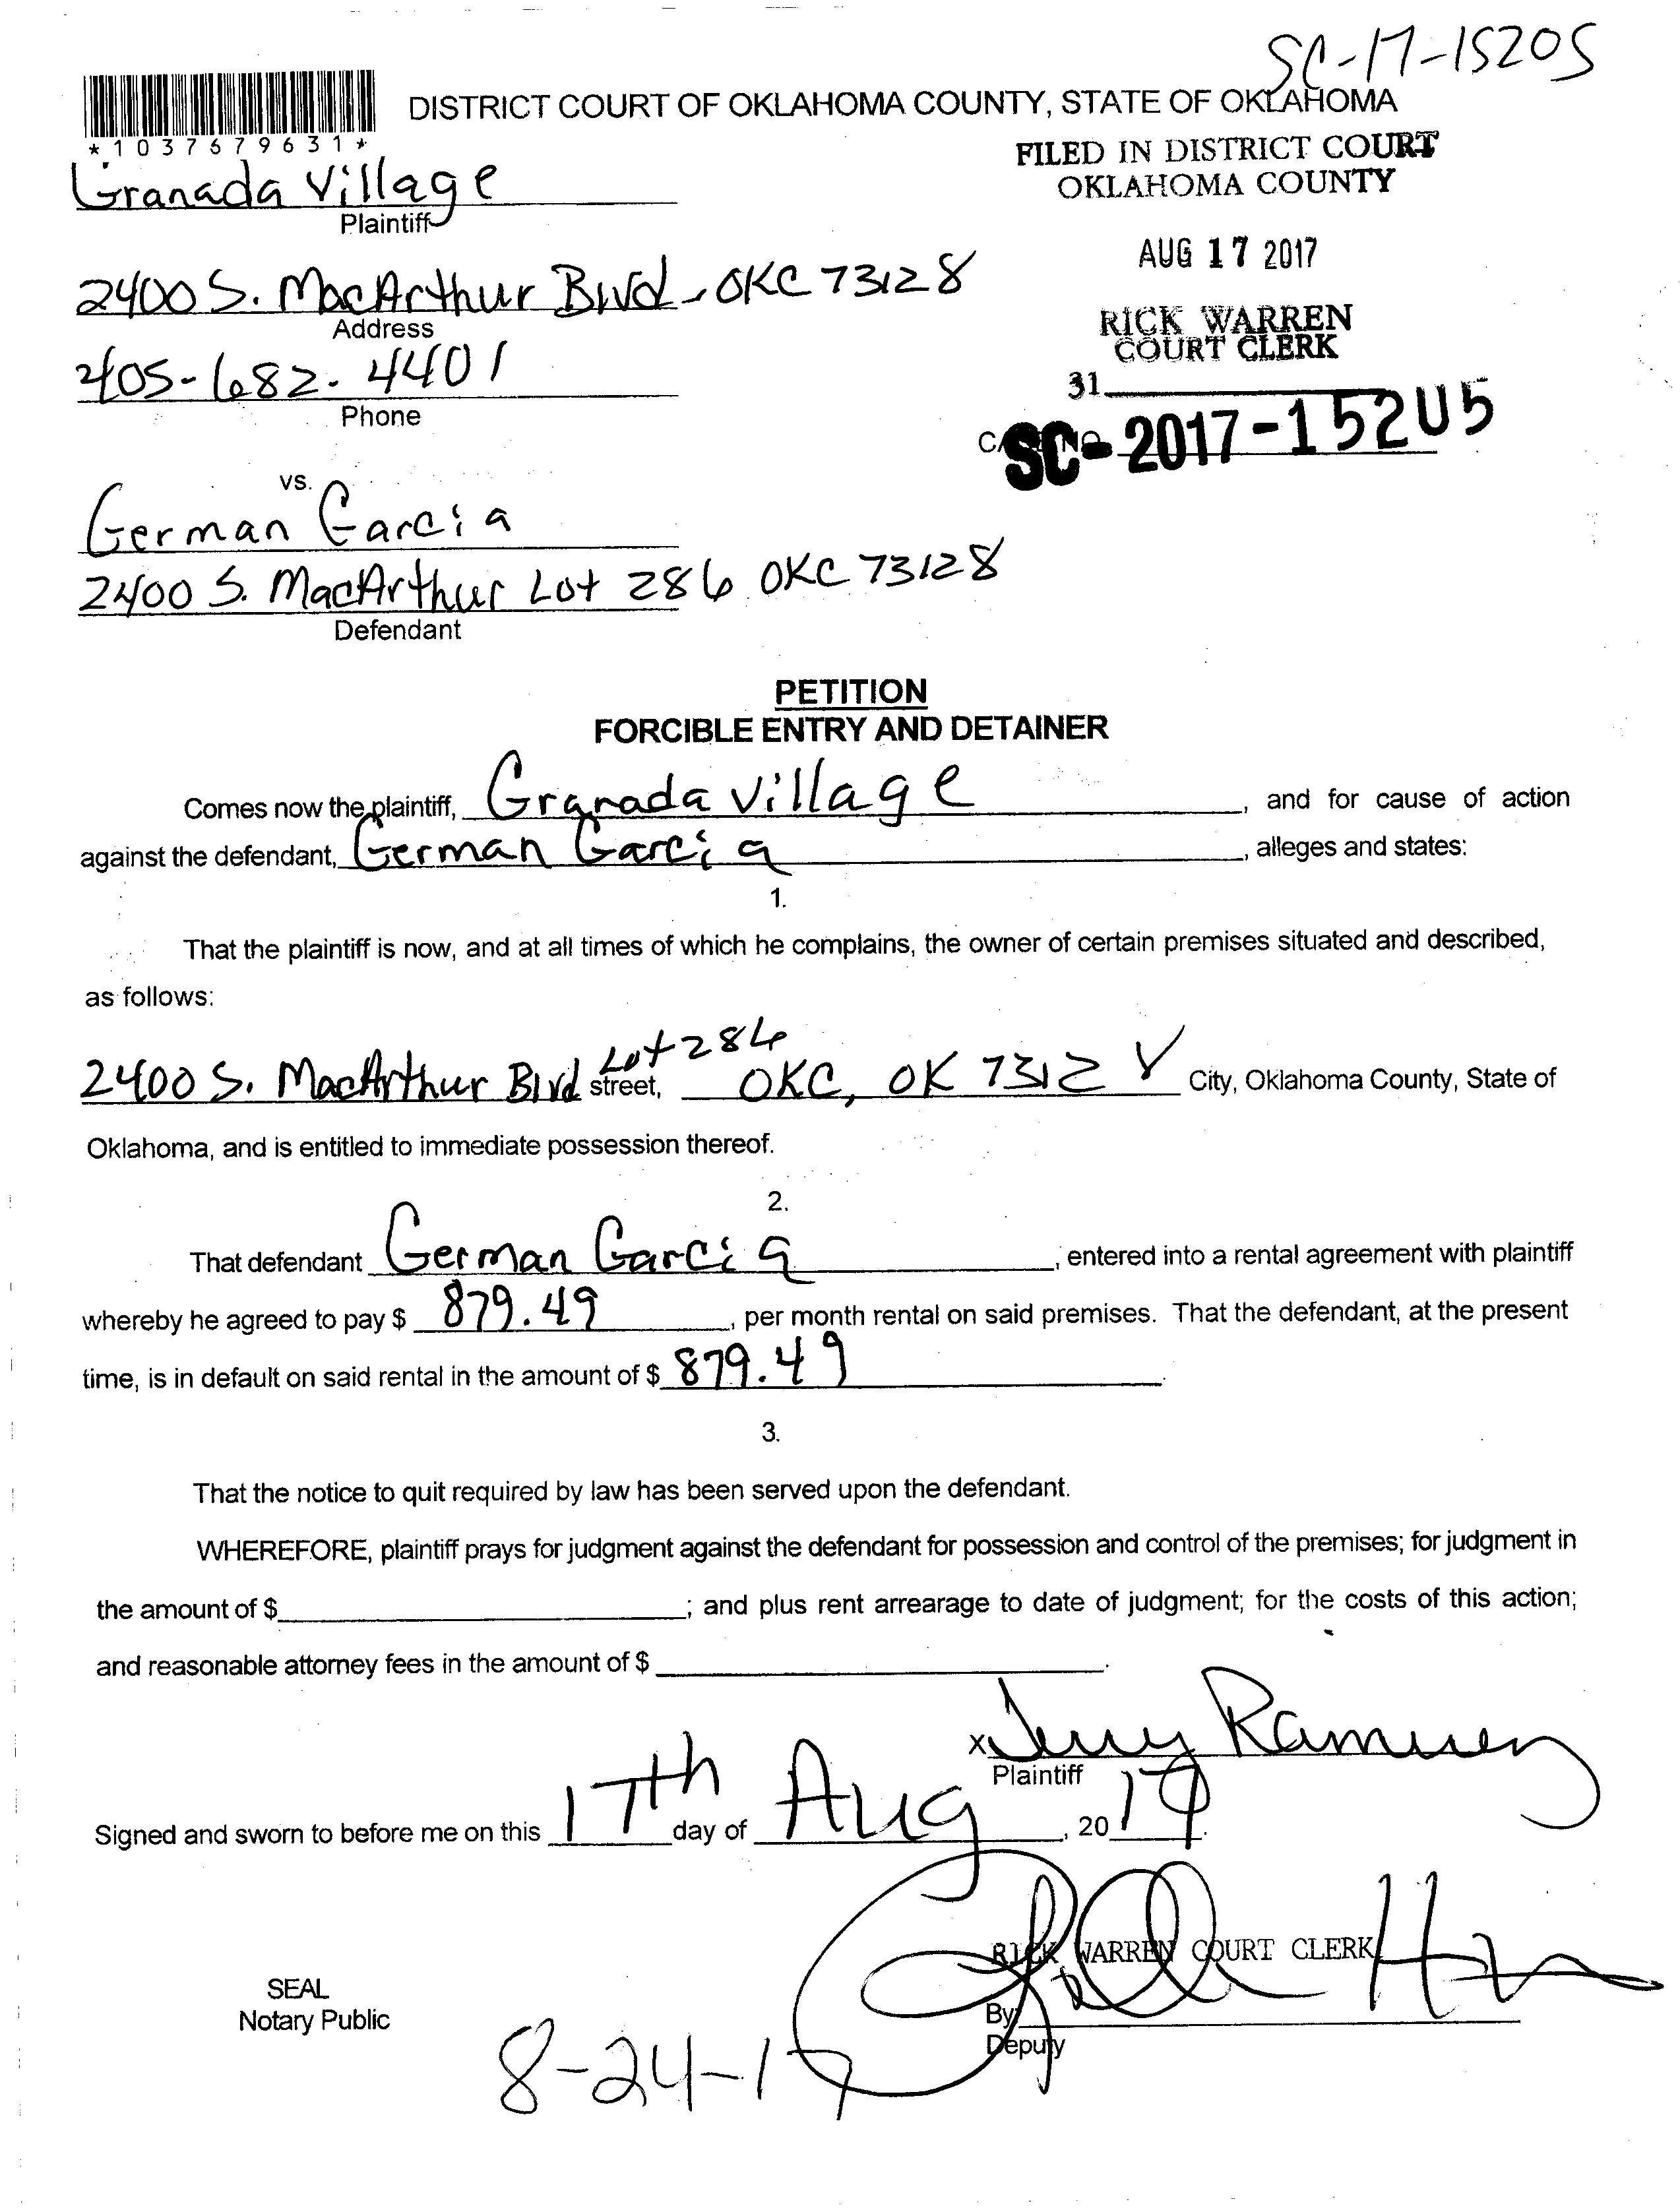 SC-17-15205
DISTRICT COURT OF OKLAHOMA COUNTY, STATE OF OKLAHOMA
*1037679631*
FILED IN DISTRICT COURT
OKLAHOMA COUNTY
Granada Village
Plaintiff
AUG 17 2017
2400 S. MacArthur Blvd - OKC 73128
Address
RICK WARREN
COURT CLERK
405-682-4401
Phone
31
SC-2017-15205
vs.
German Garcia
2400 S. MacArthur Lot 286 OKC 73128
Defendant
PETITION
FORCIBLE ENTRY AND DETAINER
Comes now the plaintiff, Granada Village, and for cause of action
against the defendant, German Garcia, alleges and states:
1.
That the plaintiff is now, and at all times of which he complains, the owner of certain premises situated and described,
as follows:
Lot 286
2400 S. MacArthur Blvd street, OKC, OK 7312 City, Oklahoma County, State of
Oklahoma, and is entitled to immediate possession thereof.
2.
That defendant German Garcia, entered into a rental agreement with plaintiff
whereby he agreed to pay $ 879.49, per month rental on said premises. That the defendant, at the present
time, is in default on said rental in the amount of $ 879.49.
3.
That the notice to quit required by law has been served upon the defendant.
WHEREFORE, plaintiff prays for judgment against the defendant for possession and control of the premises; for judgment in
the amount of $; and plus rent arrearage to date of judgment; for the costs of this action;
and reasonable attorney fees in the amount of $.
X Jerry Ramirez
Plaintiff
Signed and sworn to before me on this 17th day of Aug, 2017.
RICK WARREN COURT CLERK
SEAL
Notary Public
By
Deputy
8-24-17